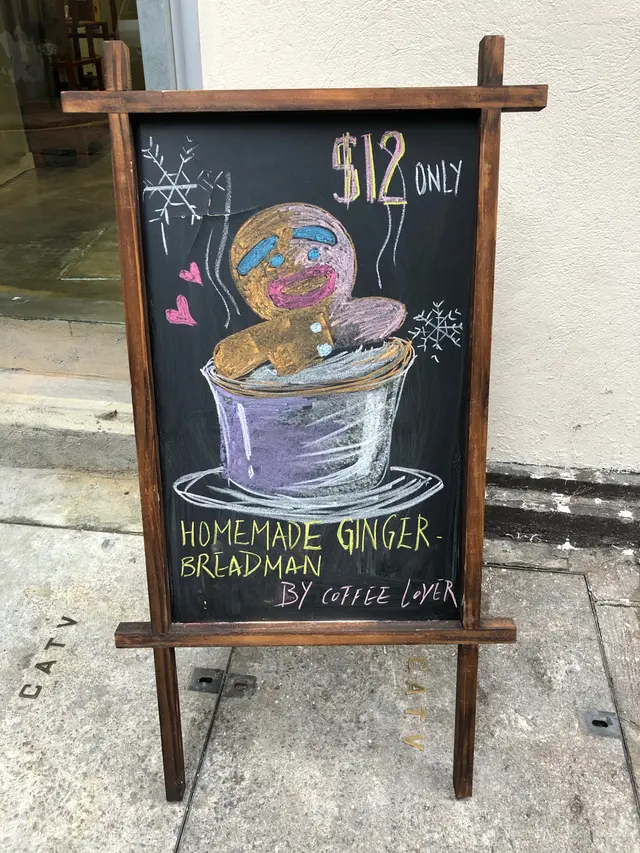 $12 ONLY
HOMEMADE GINGER-
BREADMAN
BY COFFEE LOVER
CATV
CATV